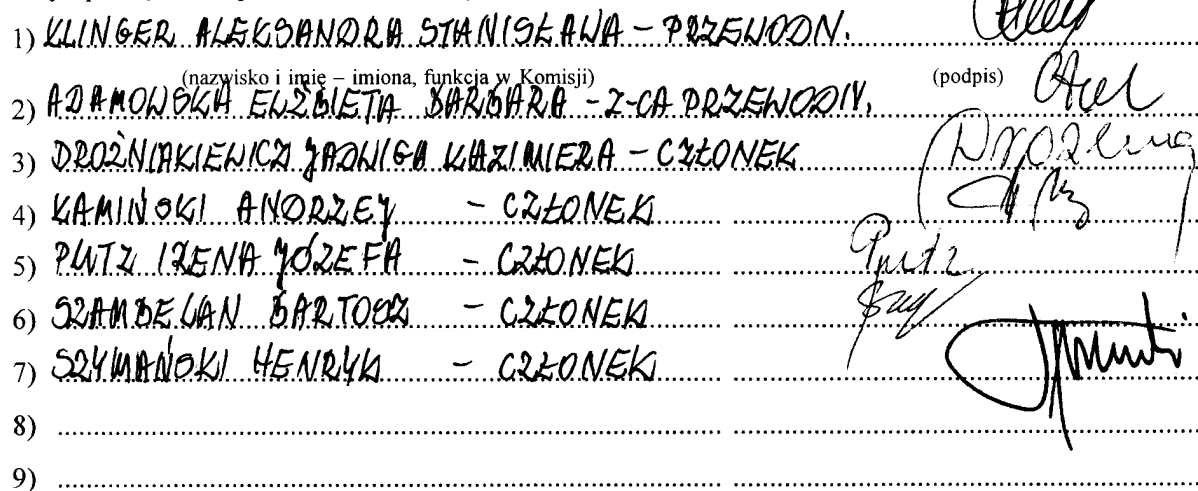 1) KLINGER ALEKSANDRA STANISŁAWA – PRZEWODN.
(nazwisko i imię – imiona, funkcja w Komisji) (podpis)
2) ADAMOWSKA ELŻBIETA BARBARA – Z-CA PRZEWODN.
3) DROŹNIAKIEWICZ JADWIGA KAZIMIERA – CZŁONEK
4) KAMIŃSKI ANDRZEJ – CZŁONEK
5) PUTZ IRENA JÓZEFA – CZŁONEK Putz
6) SZAMBELAN BARTOSZ – CZŁONEK
7) SZYMAŃSKI HENRYK – CZŁONEK
8)
9)